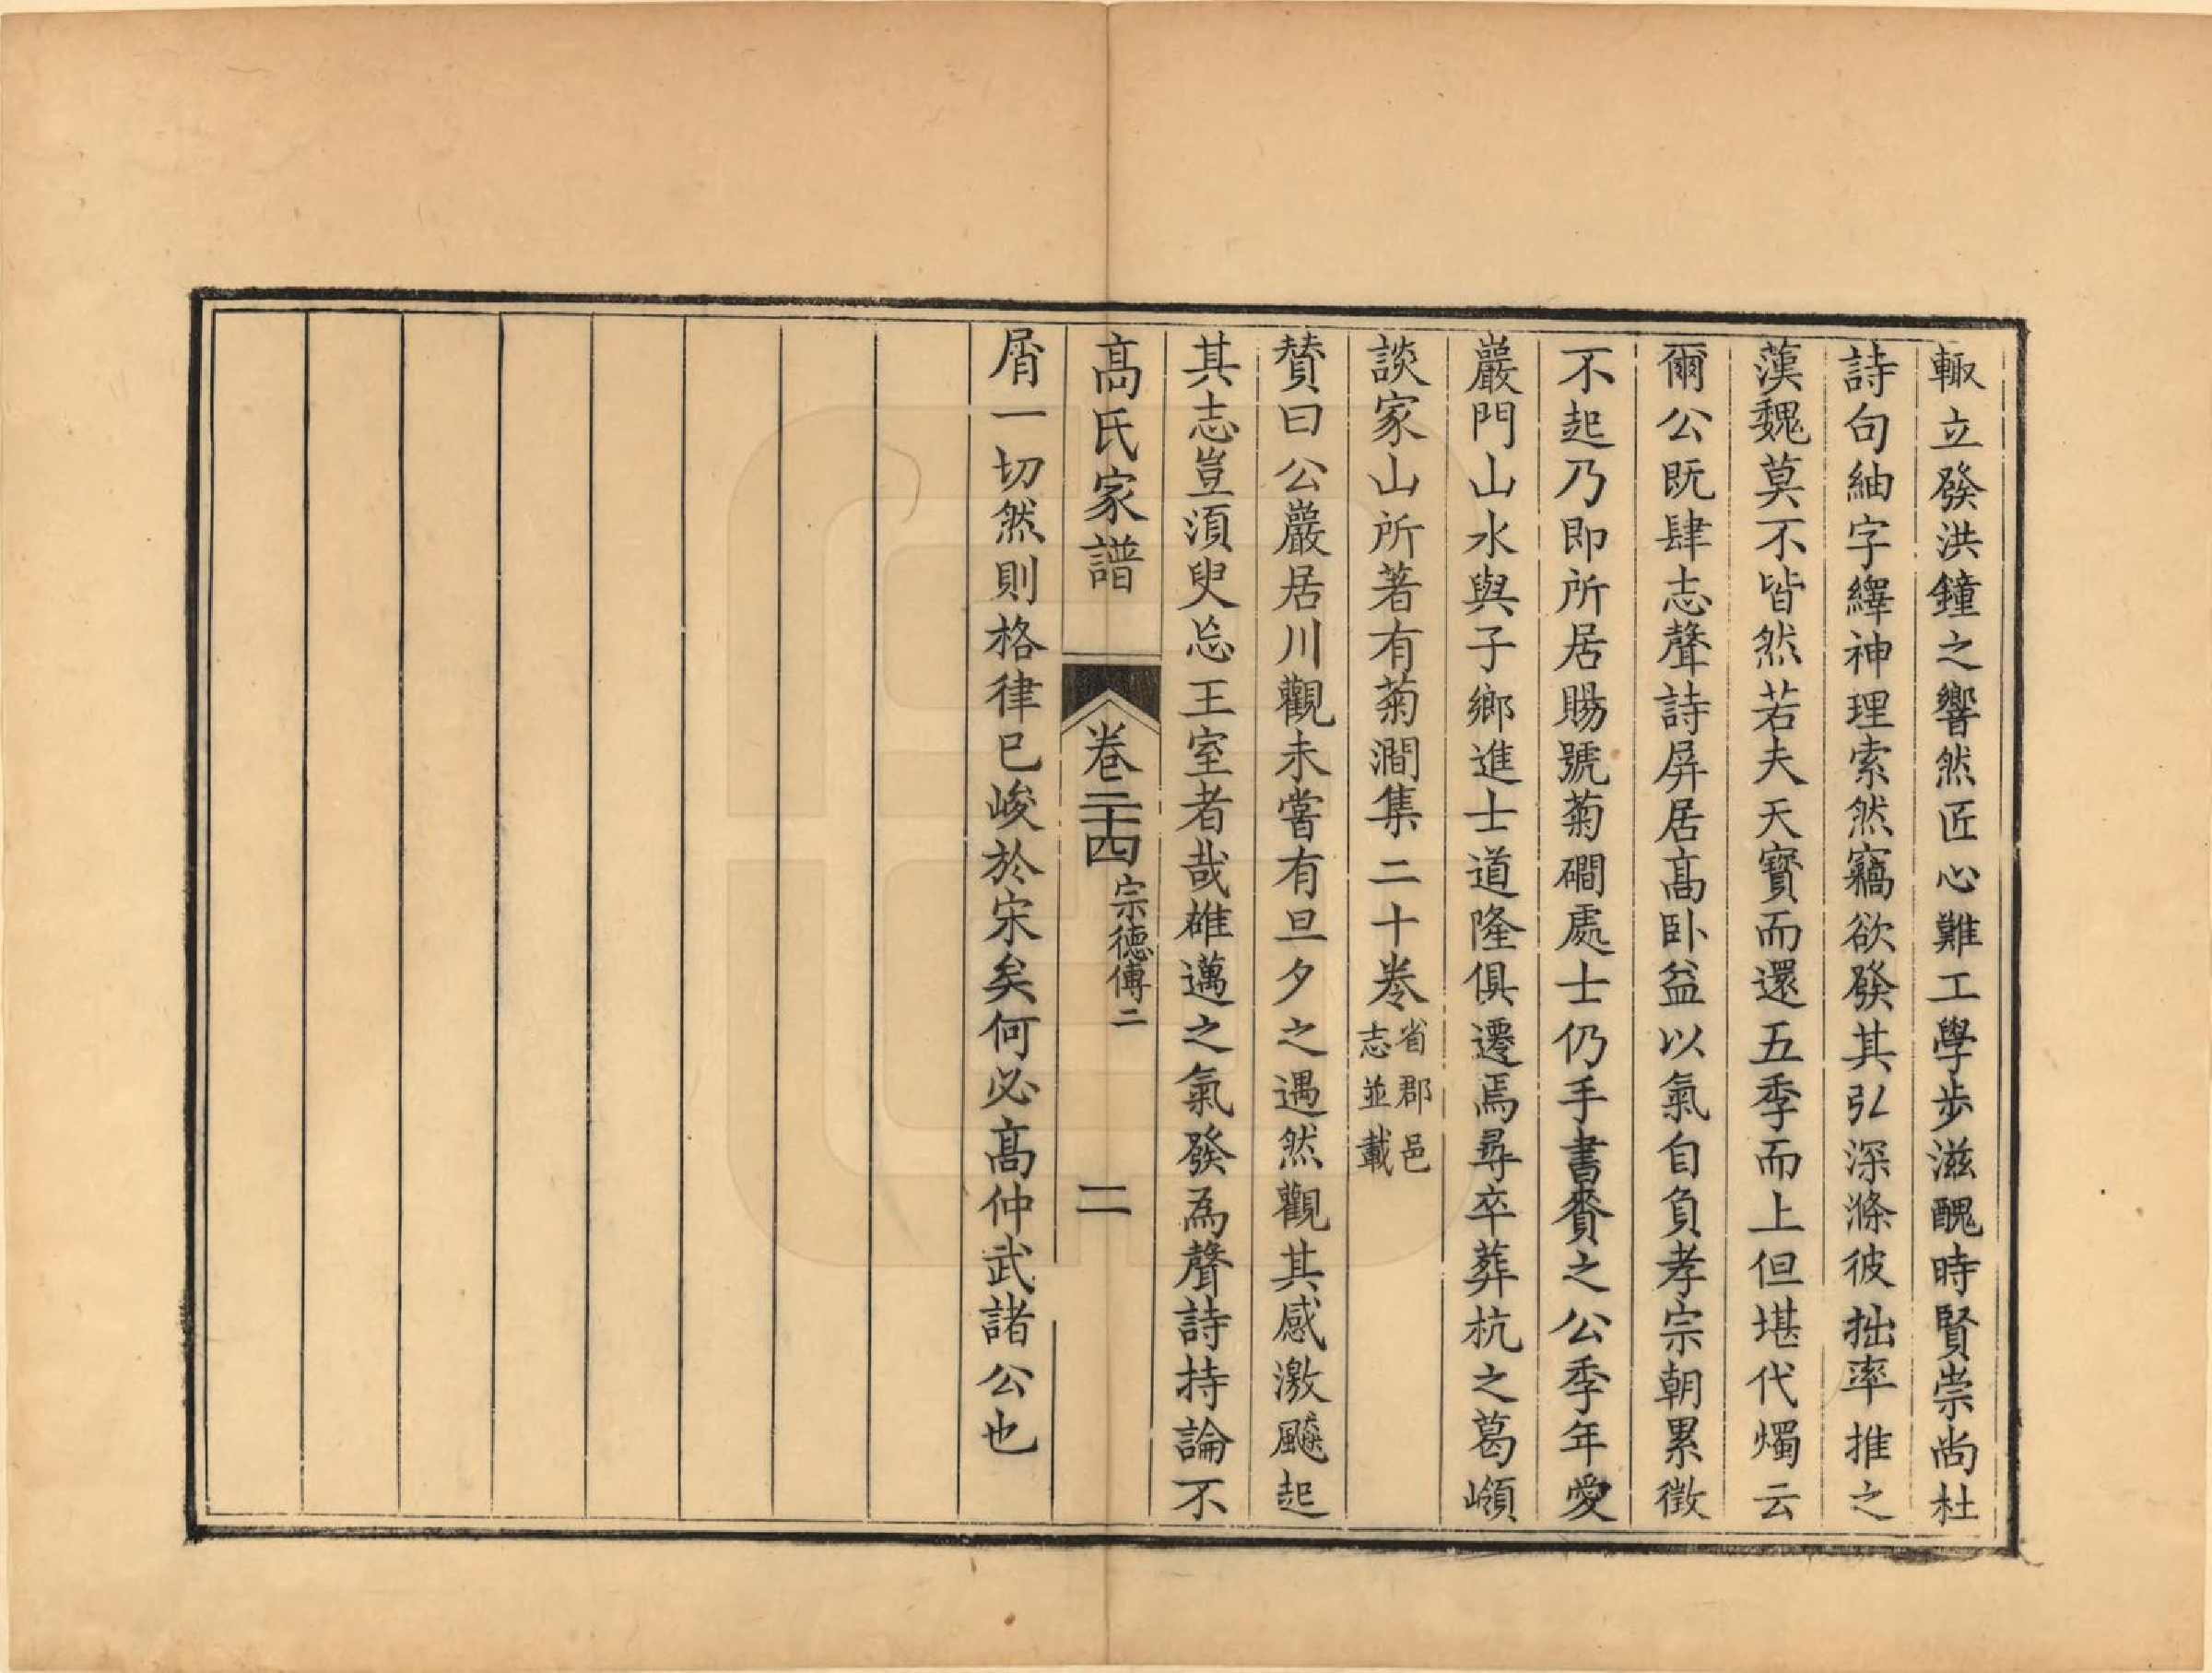 輙立發洪鐘之響然匠心難工學步滋醜時賢崇尚杜
詩句紬字繹神理索然竊欲發其弘深滌彼拙率推之
漢魏莫不皆然若夫天寳而還五季而上但堪代燭云
爾公既肆志聲詩屏居髙卧益以氣自負孝宗朝累徵
不起乃即所居賜號菊磵處士仍手書賚之公季年愛
巖門山水與子鄉進士道隆俱遷焉尋卒葬杭之葛嶺
談家山所著有菊澗集二十卷
省郡邑
志並載
賛曰公巖居川觀未嘗有旦夕之遇然觀其感激飈起
其志豈湏臾忘王室者哉雄邁之氣發為聲詩持論不
髙氏家譜
卷二十四
宗德傳二
二
屑一切然則格律已峻於宋矣何必髙仲武諸公也